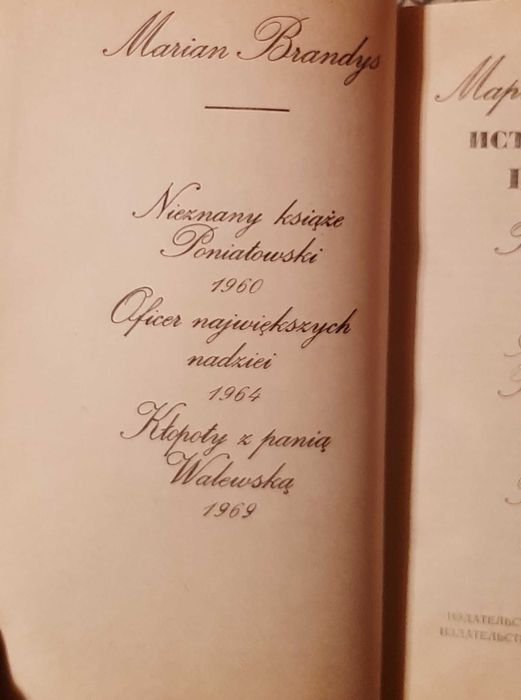 Marian Brandys
Nieznany książe
Poniatowski
1960
Oficer największych
nadziei
1964
Kłopoty z panią
Walewską
1969
Мар
ист
издательс
издательст